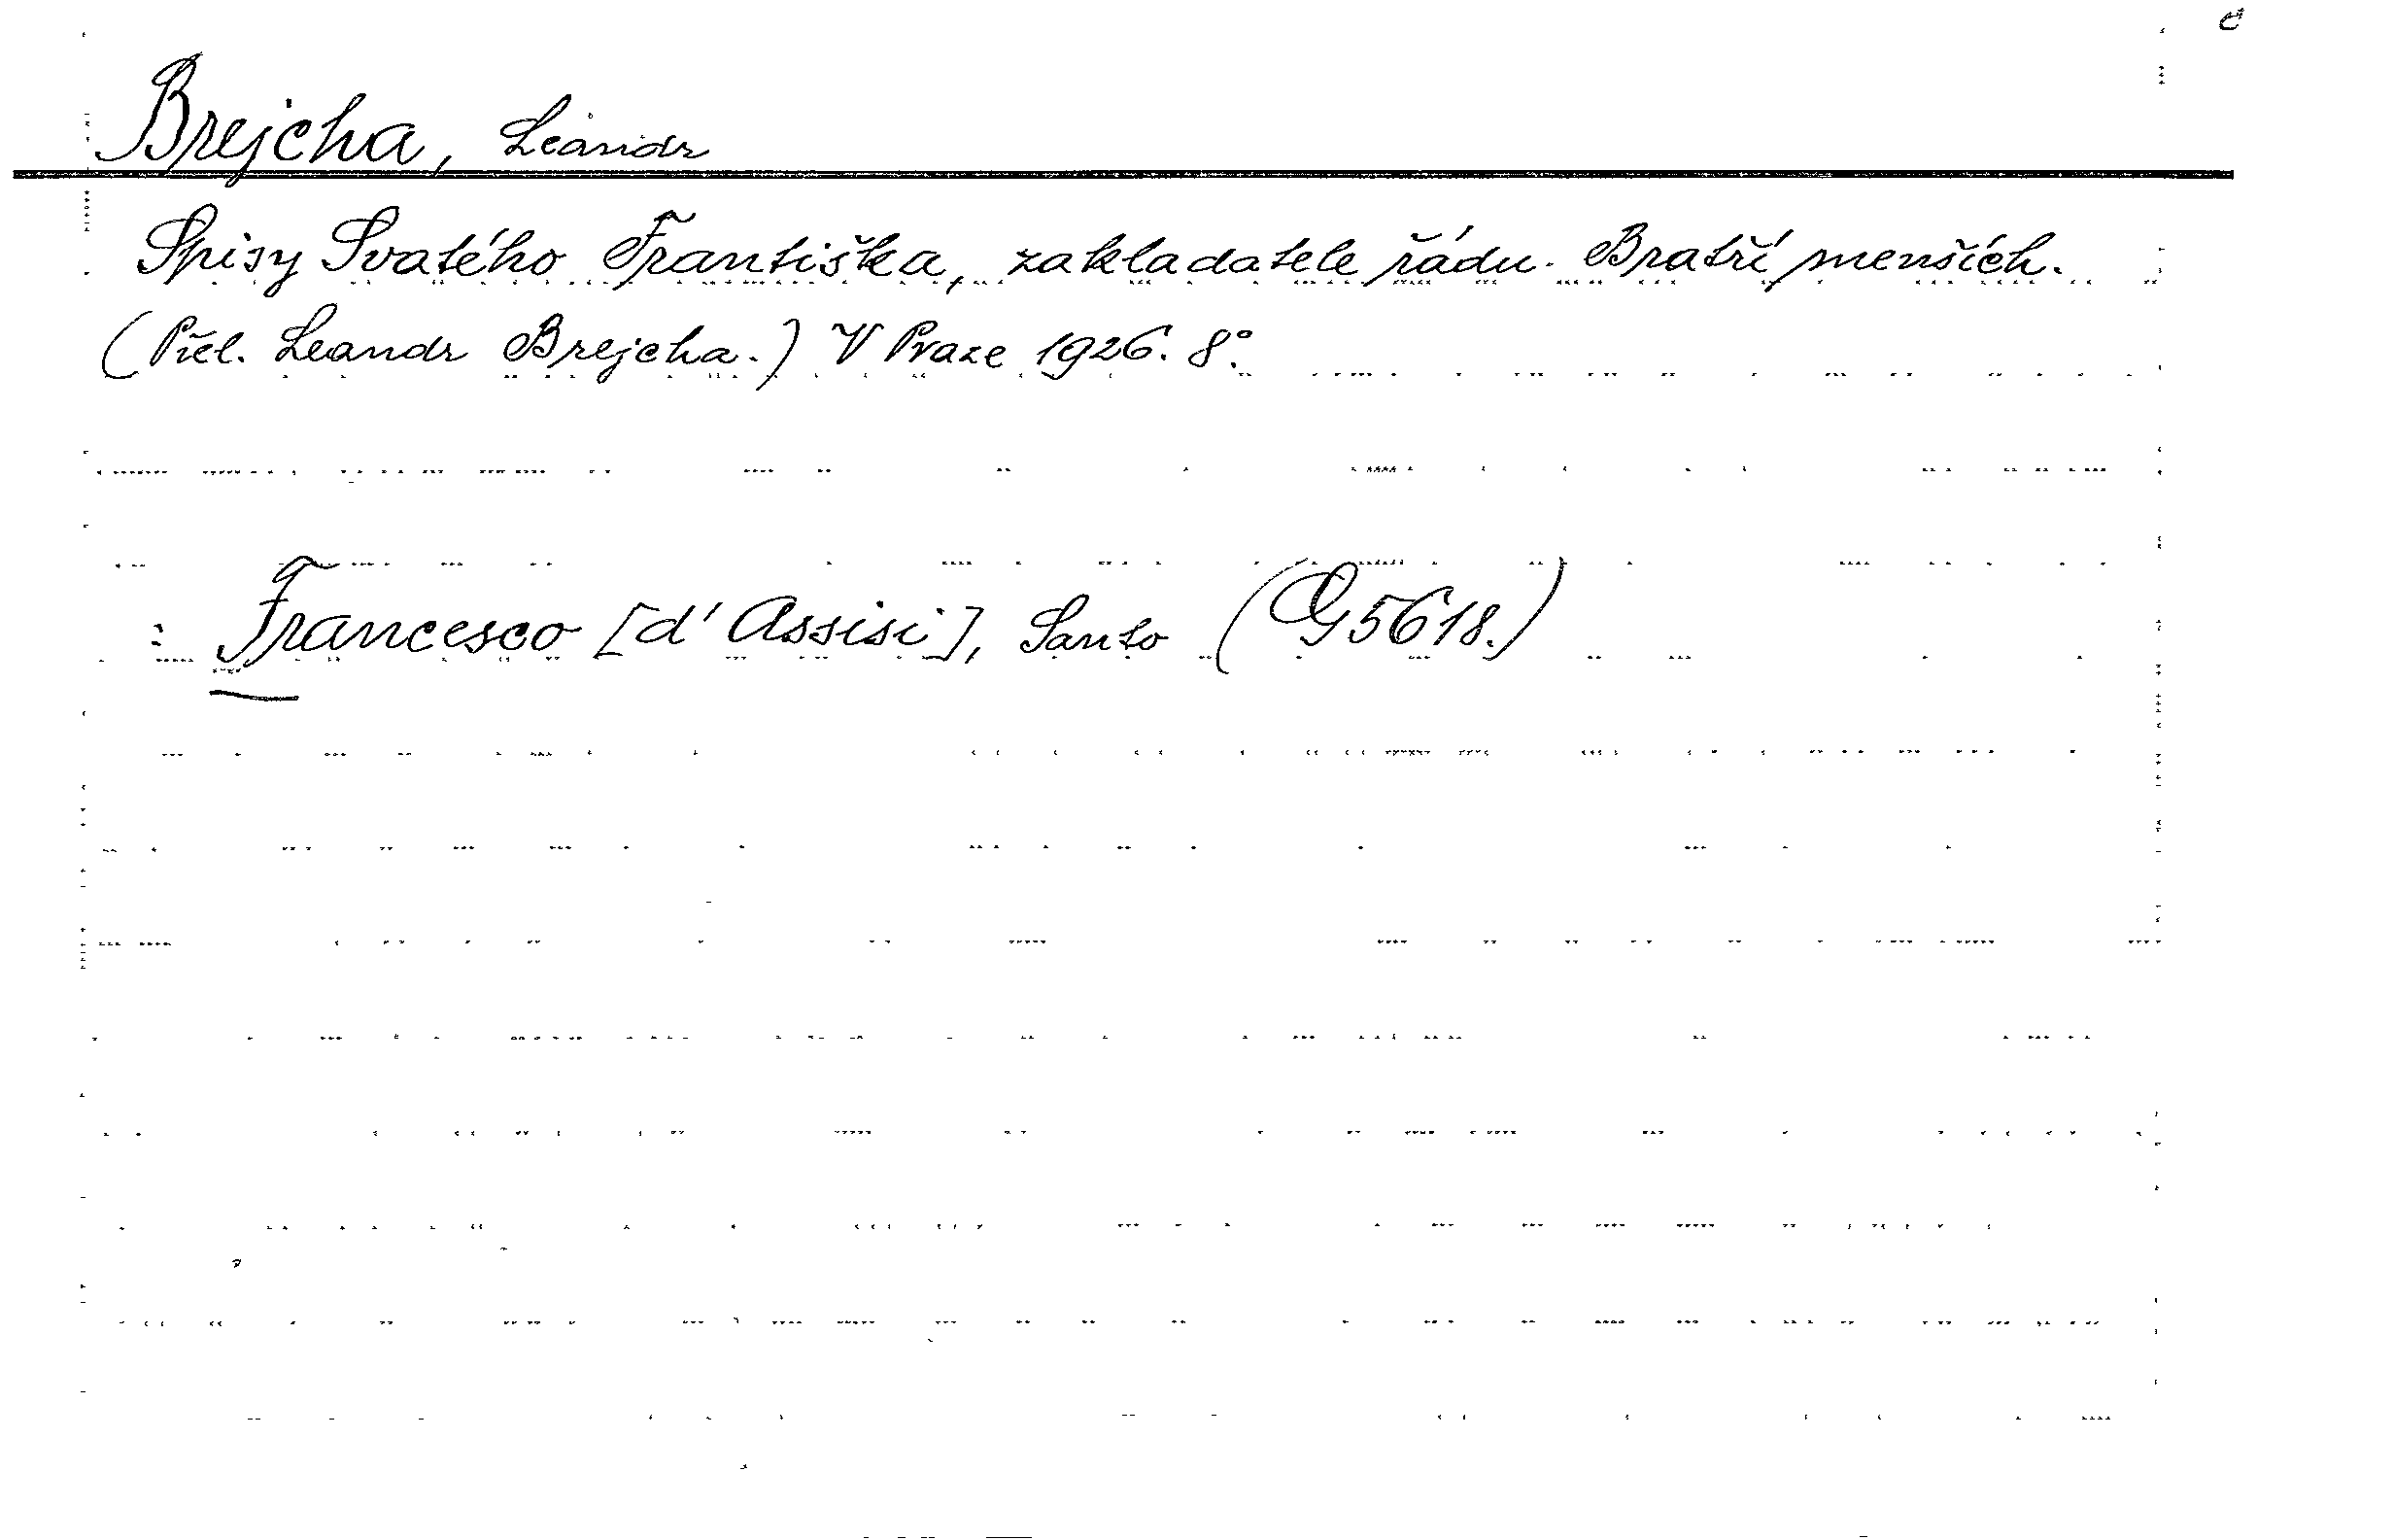 č
Brejcha, Leandr
Spisy Svatého Františka, zakladatele řádu Bratří menších.
(Přel. Leandr Brejcha.) V Praze 1926. 8°.
: Francesco [d'Assisi], Santo (G 5618.)